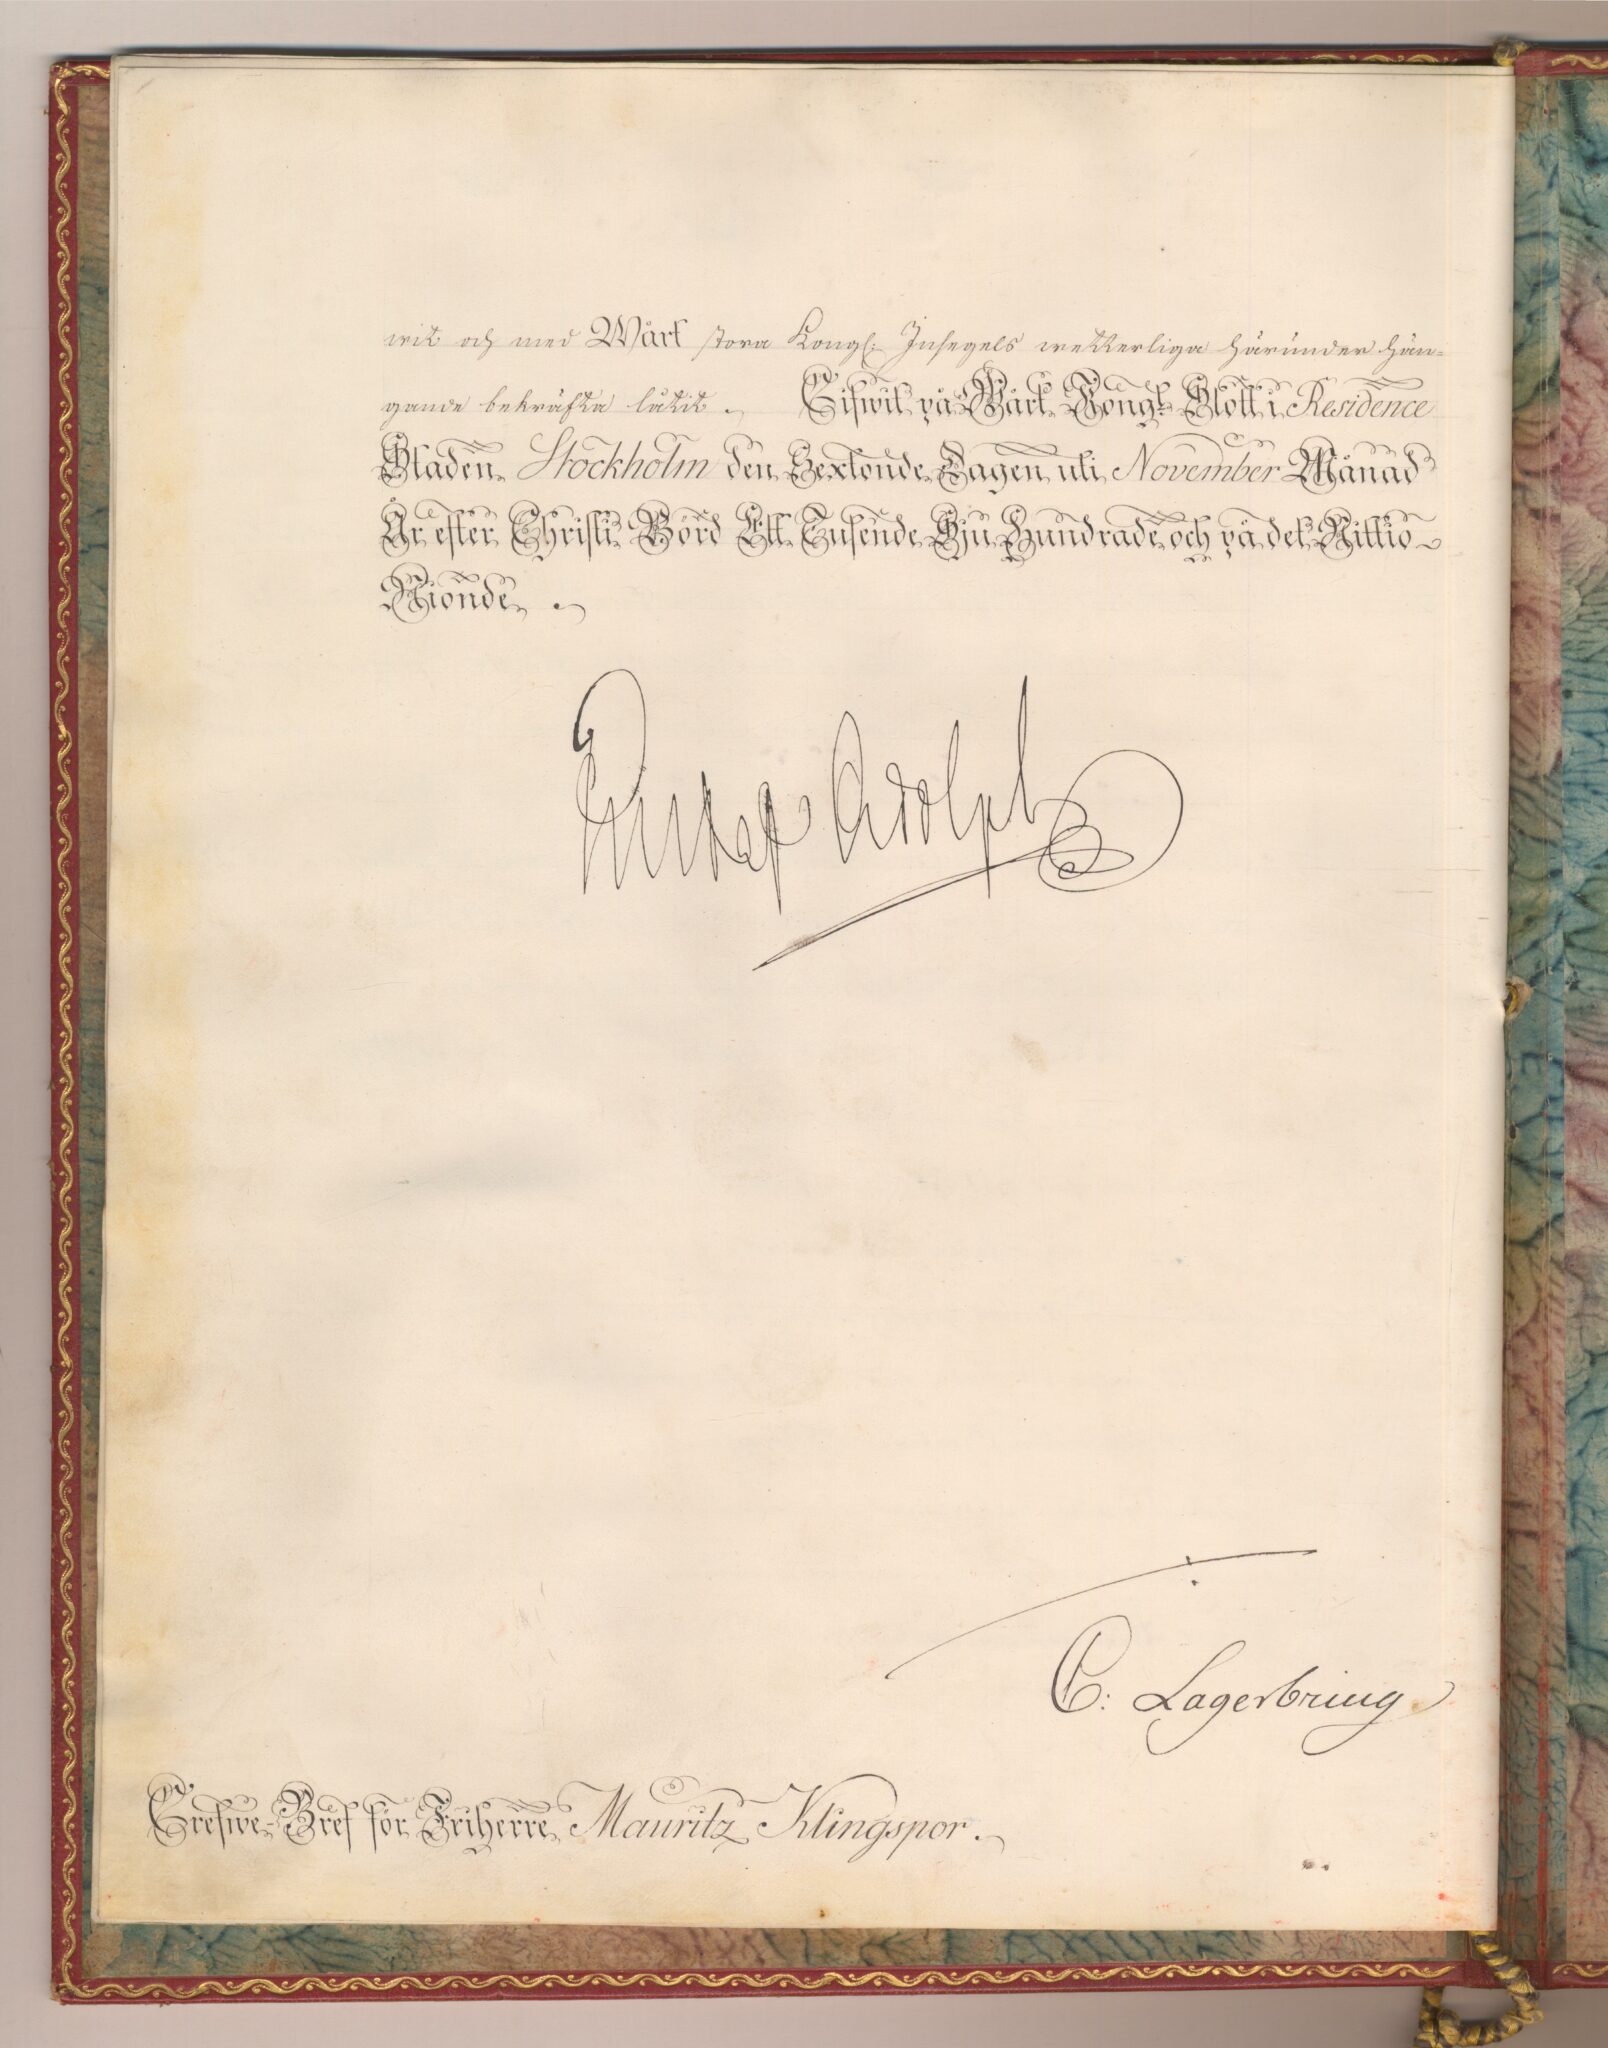 wit och med Wårt stora Kongl: Insegels wetterliga härunder hän-
gande bekräfta låtit. Gifwit på Wårt Kongl. Slott i Residence
Staden Stockholm den Sextonde Dagen uti November Månad
År efter Christi Börd Ett Tusende Sju Hundrade och på det Nittio
Nionde.
Gustaf Adolph
C: Lagerbring
Grefwe-Bref för Friherre Mauritz Klingspor.